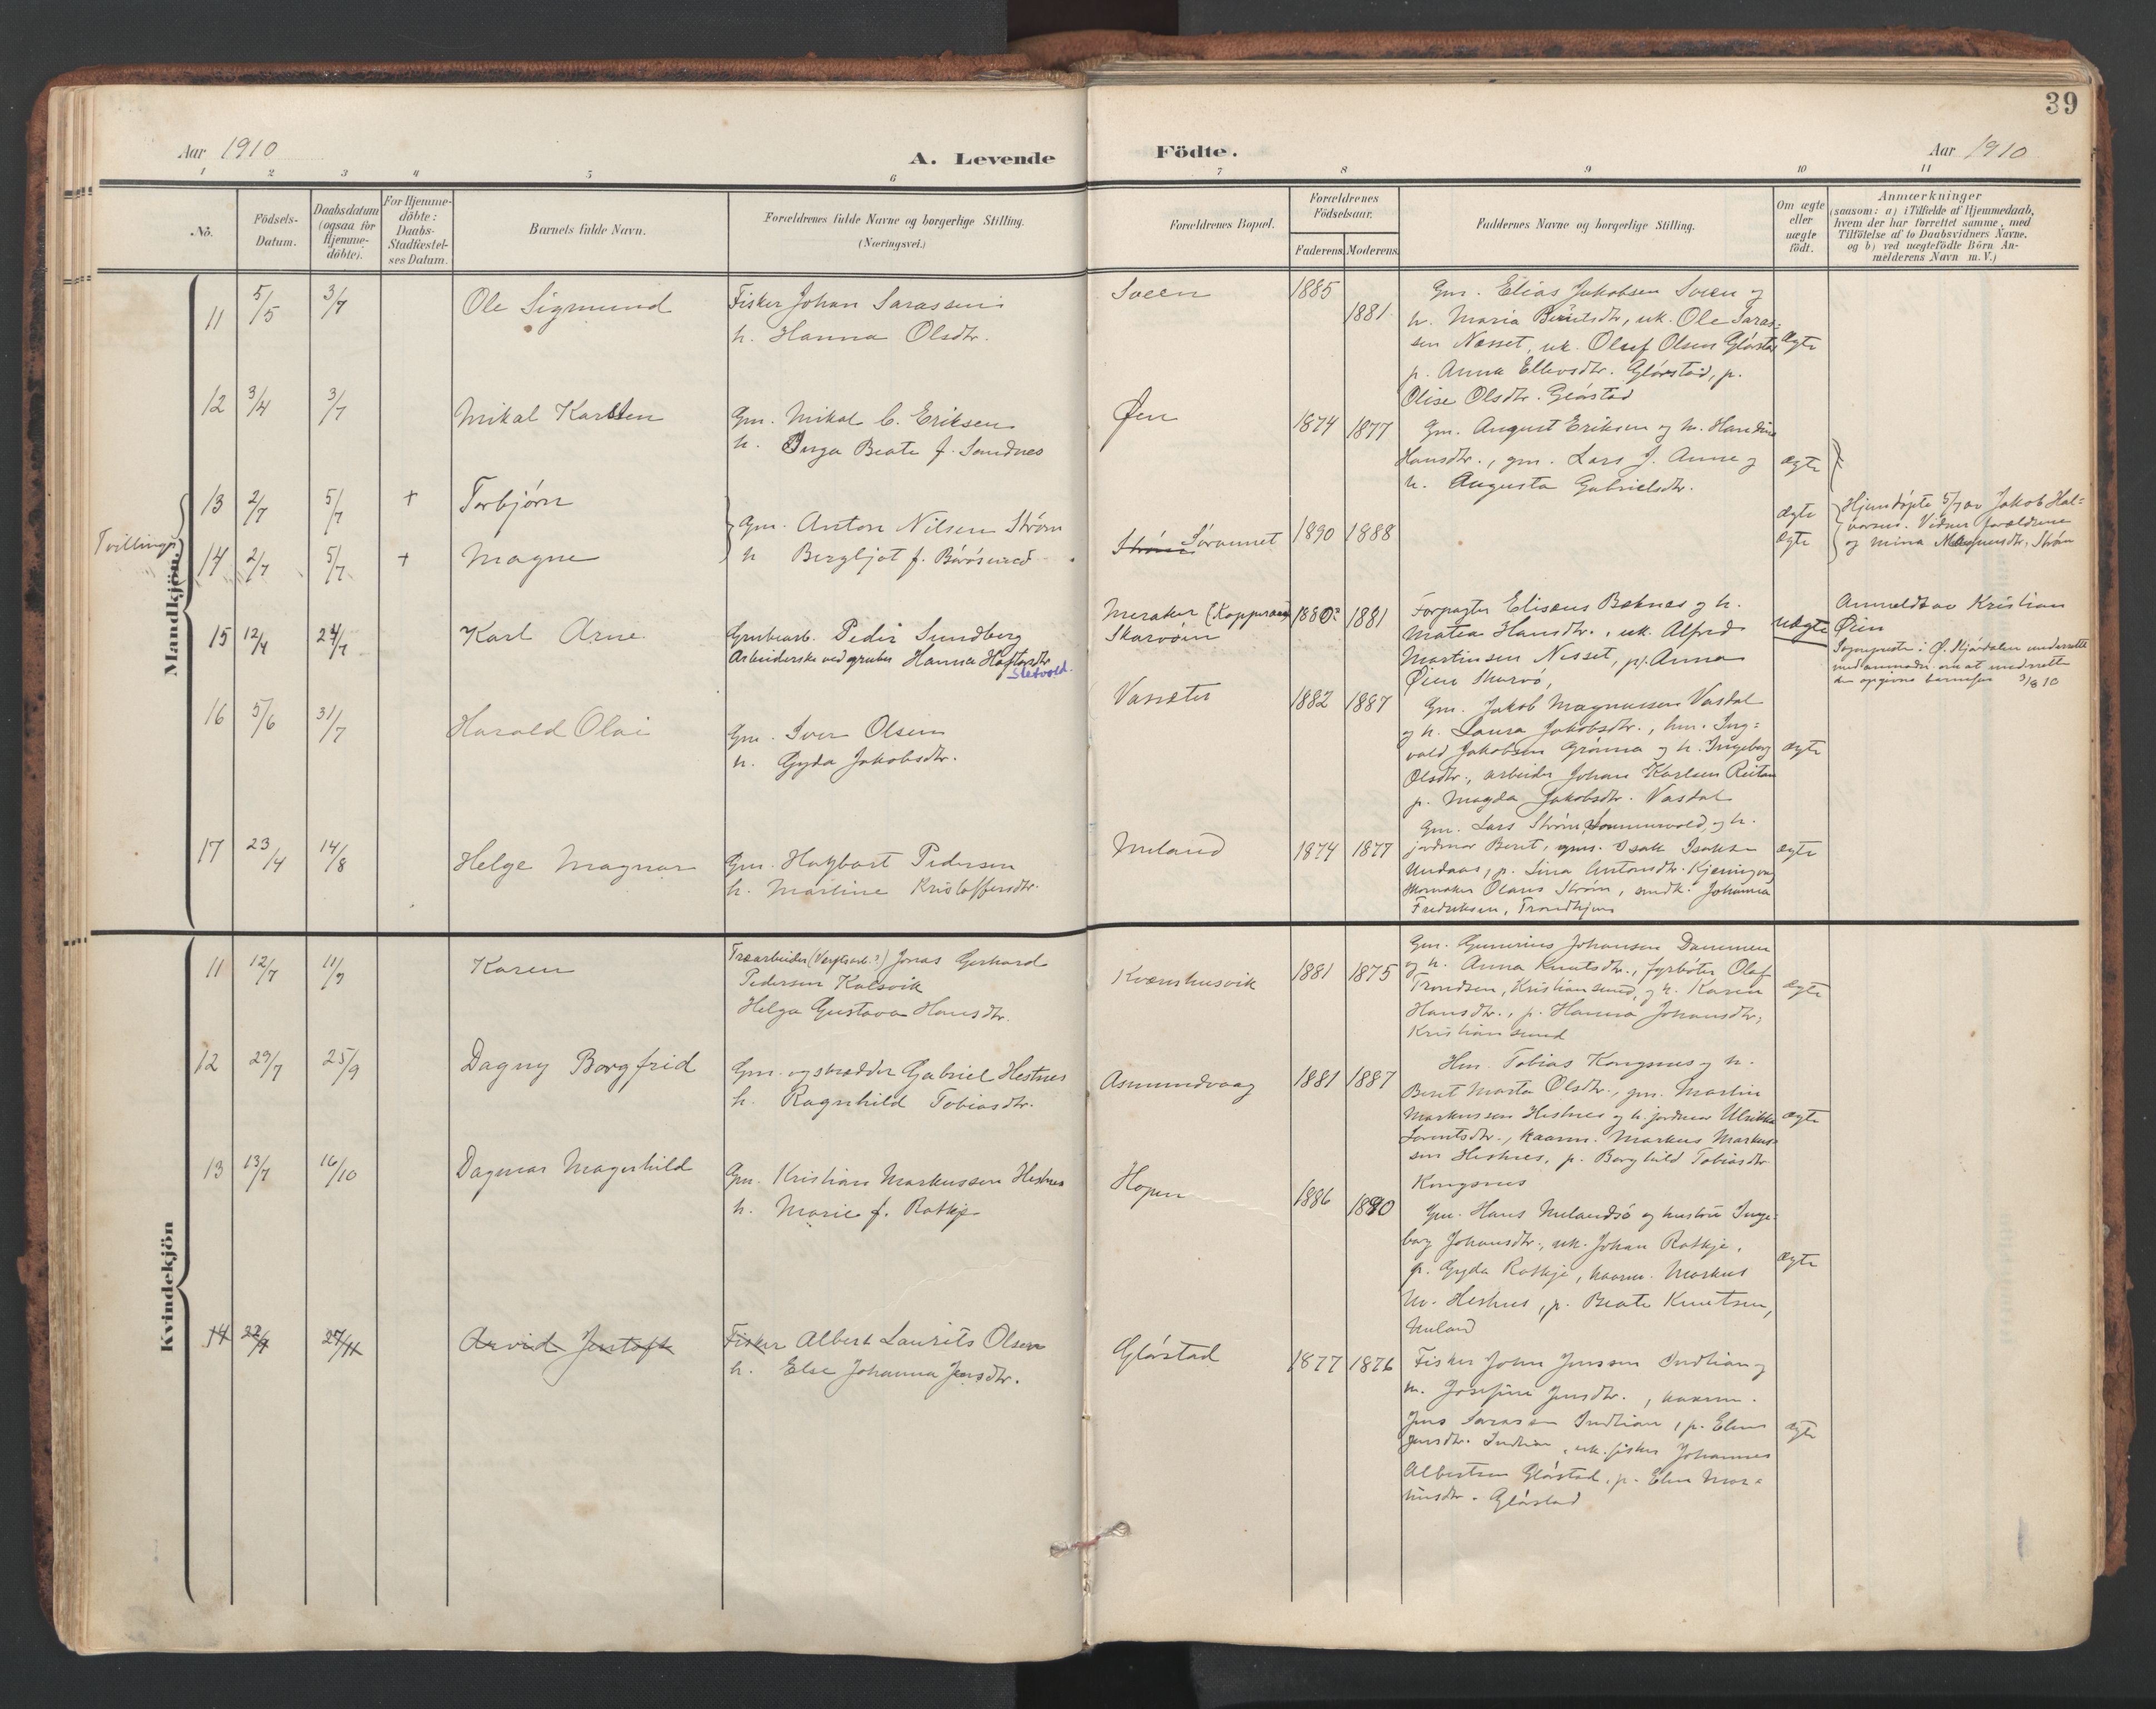 39
Aar 1910
A. Levende
Födte.
Aar 1910
1 2 3 4 5 6 7 8 9 10 11
No.
Födsels-
Datum.
Daabsdatum
(ogsaa for
Hjemme-
döbte).
For Hjemme-
döbte:
Daabs-
Stadfæstel-
ses Datum.
Barnets fulde Navn.
Forældrenes fulde Navne og borgerlige Stilling.
(Næringsvei.)
Forældrenes Bopæl.
Forældrenes
Födselsaar.
Faderens Moderens
Faddernes Navne og borgerlige Stilling.
Om ægte
eller
uægte
födt.
Anmærkninger
(saasom: a) i Tilfælde af Hjemmedaab,
hvem der har forrettet samme, med
Tilföielse af to Daabsvidners Navne,
og b) ved uægtefödte Börn An-
melderens Navn m. V.)
Mandkjön.
11 5/5 3/7 Ole Sigmund
Fisker Johan Sarassen
h. Hanna Olsdtr.
Sveen 1885 1881
Gm. Elias Jakobsen Sveen og
h. Maria Berntsdtr, uk. Ole Saras-
sen Nesset, uk. Oluf Olsen Gløstad
p. Anna Ellevsdtr. Gløstad, p.
Olise Olsdtr. Gløstad
ægte
12 3/4 3/7 Mikal Karsten
Gm. Mikal C. Eriksen
h. Inga Beate f. Sandnes
Øen 1874 1877
Gm. August Eriksen og h. Handine
Hansdtr., gm. Lars J. Aune og
h. Augusta Gabrielsdtr.
ægte
Tvillinger
13 2/7 5/7 + Torbjørn
14 2/7 5/7 + Magne
Gm. Anton Nilsen Strøm
h Bergljot f. Børøsund
Strøm Søvannet 1890 1888
ægte
ægte
Hjemdøpte 5/7 av Jakob Hal-
varsen. Vidner forældrene
og Mina Magnusdtr. Strøm
15 12/4 24/7 Karl Arne
Grubearb. Peder Sundberg
Arbeiderske ved gruber Hanna Haftorsdtr
Sletvold.
Meraker (Kopperaaen)
Skarvøien
1880? 1881
Forpagter Elisæus Boknes og h.
Matea Hansdtr., uk. Alfred
Martinsen Nesset, pj. Anna
Øien Skarvø,
uægte
Anmeldt av Kristian
Øien
Sogneprest i Ø. Stjørdalen underrettet
med anmodn. om at underrette
den opgivne barnefar 3/8 10
16 5/6 31/7 Harald Olai
Gm. Iver Olsen
h. Gyda Jakobsdtr.
Vasseter 1882 1887
Gm. Jakob Magnussen Vasdal
og h. Laura Jakobsdtr., hm. Ing-
vald Jakobsen Grønna og h. Ingeborg
Olsdtr., arbeider Johan Karlsen Reitan
p. Magda Jakobsdtr. Vasdal
ægte
17 23/4 14/8 Helge Magnar
Gm. Hagbart Pedersen
h. Martine Kristoffersdtr.
Meland 1874 1877
Gm. Lars Strøm, Sommervold, og h.
jordmor Beret, gm. Isak Isaksen
Undaas, p. Lina Antonsdtr. Kjerringvaag
skomaker Olaus Strøm, smedk. Johanna
Fredriksen, Trondhjem
ægte
Kvindekjön
11 12/7 11/9 Karen
Træarbeider (Verftsarb.?) Jonas Gerhard
Pedersen Kalsvik
Helga Gustava Hansdtr.
Kvernhusvik 1881 1875
Gm. Gunerius Johansen Dammen
og h. Anna Knutsdtr., fyrbøter Olaf
Trondsen, Kristiansund, og h. Karen
Hansdtr., p. Hanna Johansdtr,
Kristiansund
ægte
12 29/7 25/9 Dagny Borgfrid
Gm. og skrædder Gabriel Hestnes
h. Ragnhild Tobiasdtr.
Asmundvaag 1881 1887
Hm. Tobias Kongsnes og h.
Beret Marta Olsdtr., gm. Martin
Markussen Hestnes og h. jordmor Ulrikke
Lorentsdtr., kaarm. Markus Markus-
sen Hestnes, p. Borghild Tobiasdtr
Kongsnes
ægte
13 13/7 16/10 Dagmar Magnhild
Gm. Kristian Markussen Hestnes
h. Marie f. Rotkje
Hopen 1886 1890
Gm. Hans Melandsø og hustru Inge-
borg Johansdtr., uk. Johan Rotkje,
p. Gyda Rotkje, kaarm. Markus
M. Hestnes, p. Beate Knutsen,
Meland
ægte
14 22/9 27/11 Arvid Jentoft
Fisker Albert Laurits Olsen
h. Else Johanna Jensdtr.
Gløstad 1877 1876
Fisker John Jenssen Indlian og
h. Josefine Jensdtr., kaarm.
Jens Sarassen Indlian, p. Elen
Jensdtr. Indlian, uk. fisker Johannes
Albertsen Gløstad, p. Elen Mar-
tinsdtr. Gløstad
ægte